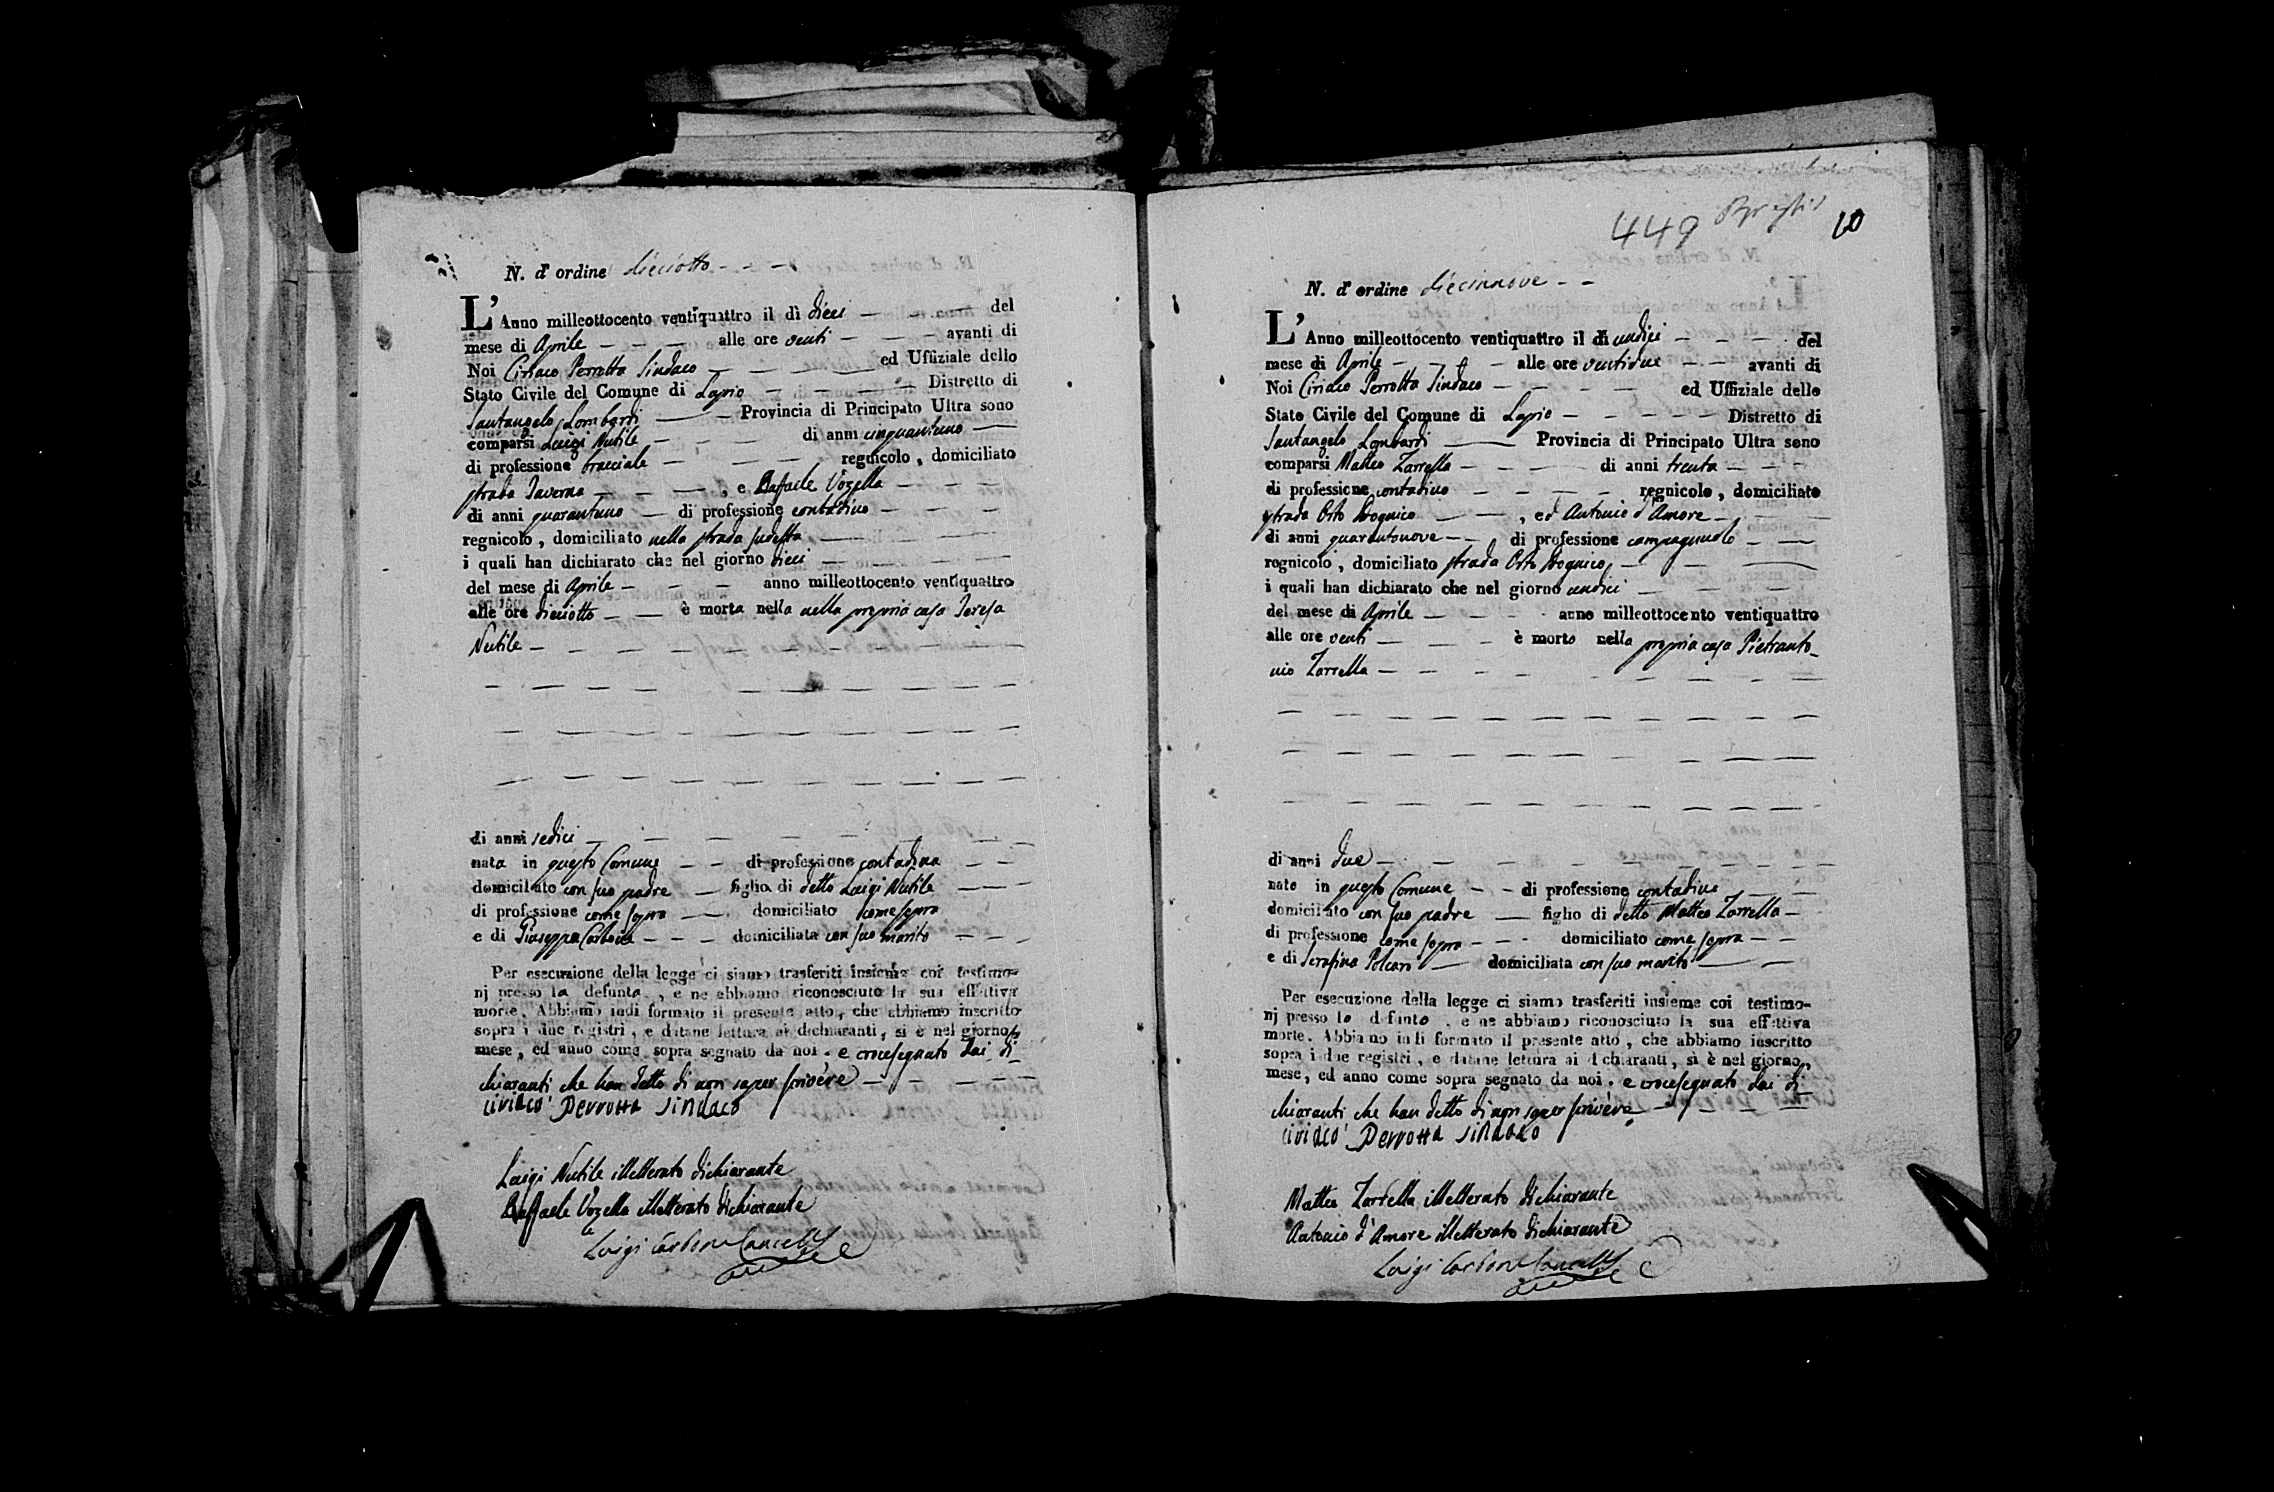 N. d'ordine dieciotto
L'Anno milleottocento ventiquattro il dì dieci del
mese di Aprile alle ore venti avanti di
Noi Ciriaco Perrotta Sindaco ed Uffiziale dello
Stato Civile del Comune di Lapio Distretto di
Santangelo Lombardi Provincia di Principato Ultra sono
comparsi Luigi Nutile di anni cinquantuno
di professione bracciale regnicolo, domiciliato
strada Taverna, e Raffaele Vozella
di anni quarantuno di professione contadino
regnicolo, domiciliato nella strada sudetta
i quali han dichiarato che nel giorno dieci
del mese di Aprile anno milleottocento ventiquattro
alle ore dieciotto è morta nella nella propria casa Teresa
Nutile
di anni sedici
nata in questo Comune di professione contadina
domiciliato con suo padre figlia di detto Luigi Nutile
di professione come sopra domiciliato come sopra
e di Giuseppa Carbone domiciliata con suo marito
Per esecuzione della legge ci siamo trasferiti insieme coi testimo-
nj presso la defunta, e ne abbiamo riconosciuto la sua effettiva
morte. Abbiamo indi formato il presente atto, che abbiamo inscritto
sopra i due registri, e datane lettura ai dichiaranti, si è nel giorno,
mese, ed anno come sopra segnato da noi. e crocesegnato dai di-
chiaranti che han detto di non saper scrivere
ciriaco Perrotta sindaco
Luigi Nutile illetterato dichiarante
Raffaele Vozella illetterato dichiarante
Luigi Carbone Cancell
449
10
N. d'ordine diecinnove
L'Anno milleottocento ventiquattro il dì undici del
mese di Aprile alle ore ventidue avanti di
Noi Ciriaco Perrotta Sindaco ed Uffiziale dello
Stato Civile del Comune di Lapio Distretto di
Santangelo Lombardi Provincia di Principato Ultra sono
comparsi Matteo Zarrella di anni trenta
di professione contadino regnicolo, domiciliato
strada Orto, ed Antonio d'Amore
di anni quarantanove di professione compagnuolo
regnicolo, domiciliato strada Orto
i quali han dichiarato che nel giorno undici
del mese di Aprile anno milleottocento ventiquattro
alle ore venti è morto nella propria casa Pietranto-
nio Zarrella
di anni due
nato in questo Comune di professione contadino
domiciliato con suo padre figlio di detto Matteo Zarrella
di professione come sopra domiciliato come sopra
e di Serafina Polcaro domiciliata con suo marito
Per esecuzione della legge ci siamo trasferiti insieme coi testimo-
nj presso lo defunto, e ne abbiamo riconosciuto la sua effettiva
morte. Abbiamo indi formato il presente atto, che abbiamo inscritto
sopra i due registri, e datane lettura ai dichiaranti, si è nel giorno,
mese, ed anno come sopra segnato da noi. e crocesegnato dai di-
chiaranti che han detto di non saper scrivere
ciriaco Perrotta sindaco
Matteo Zarrella illetterato dichiarante
Antonio d'Amore illetterato dichiarante
Luigi Carbone Cancell